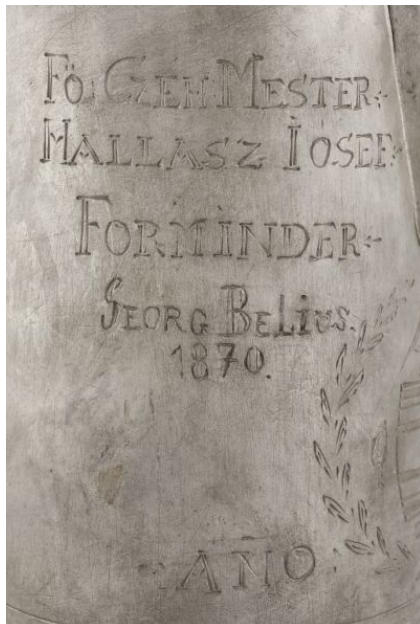 FÖ: CZEH: MESTER:
HALLASZ IOSEF:
FORMINDER:
GEORG BELiUS.
1870.
:ANO: